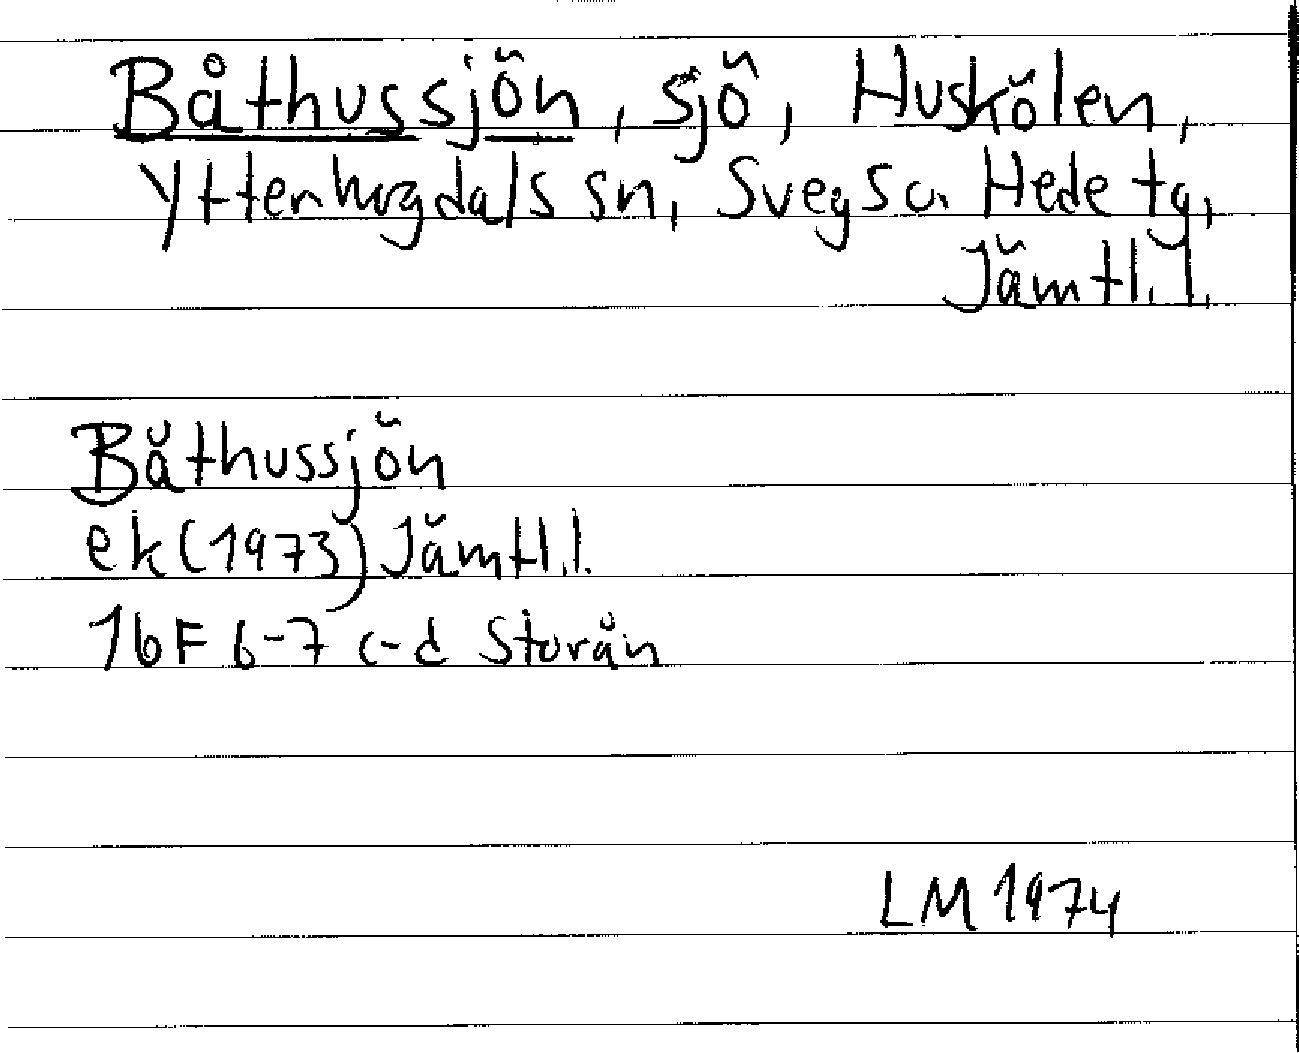 Båthussjön, sjö, Huskölen,
Ytterhogdals sn, Svegs o. Hede tg,
Jämtl. l.
Båthussjön
ek (1973) Jämtl. l.
16F 6-7 c-d Storån
LM 1974